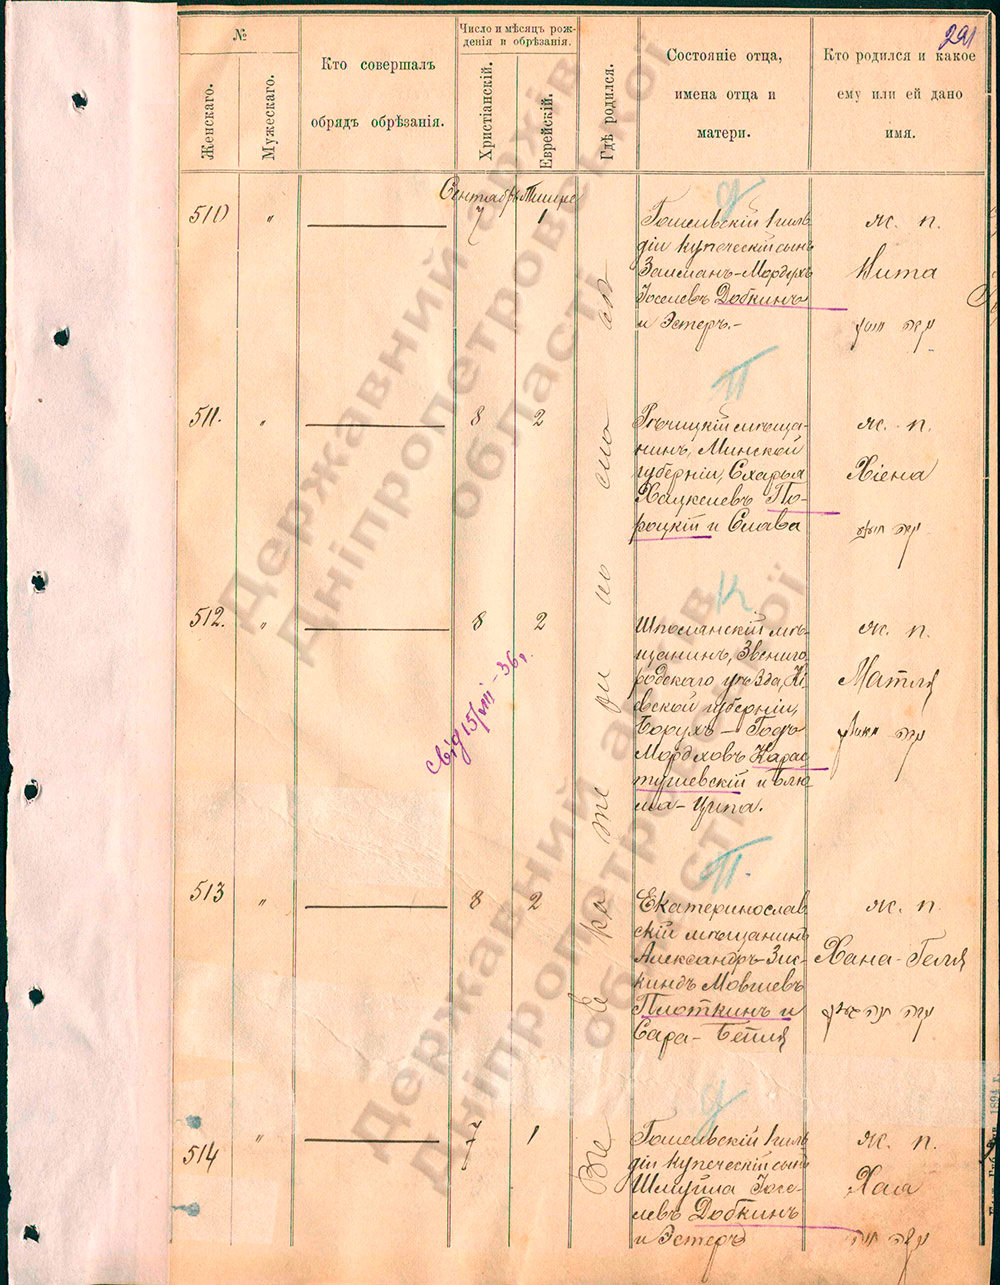 291
№
Женскаго.
Мужескаго.
Кто совершалъ
обрядъ обрѣзанія.
Число и мѣсяцъ рож-
денія и обрѣзанія.
Христіанскій.
Еврейскій.
Гдѣ родился.
Состояніе отца,
имена отца и
матери.
Кто родился и какое
ему или ей дано
имя.
Сентябрь Тишре
510 " 7 1
Гомельскій 1 гиль
діи купеческій сынъ
Залманъ-Мордухъ
Іоселевъ Добкинъ
и Эстеръ.-
ж. п.
Вита
Д
511. " 8 2
Рѣчицкій мѣща-
нинъ, Минской
губерніи, Схарья
Хацкелевъ По-
роцкій и Слава
ж. п.
Хіена
П
512. " 8 2
Шполянскій мѣ-
щанинъ, Звениго
родскаго уѣзда, Кі
евской губерніи,
Борухъ-Годъ
Мордховъ Карас
тушевскій и Блю
ма-Ципа.
ж. п.
Матля
К
свід 15/VIII-36,
513 " 8 2
Екатеринослав
скій мѣщанинъ
Александръ-Зис
киндъ Мовшевъ
Плоткинъ и
Сара-Бейля
ж. п.
Хана-Геля
П.
514 " 7 1
Гомельскій 1 гиль
діи купеческій сынъ
Шмуйла Іосе-
левъ Добкинъ
и Эстеръ
ж. п.
Хая
Д
Въ Екатеринославѣ
Державний архів
Дніпропетровської
області
Державний архів
Дніпропетровської
області
1894 г.